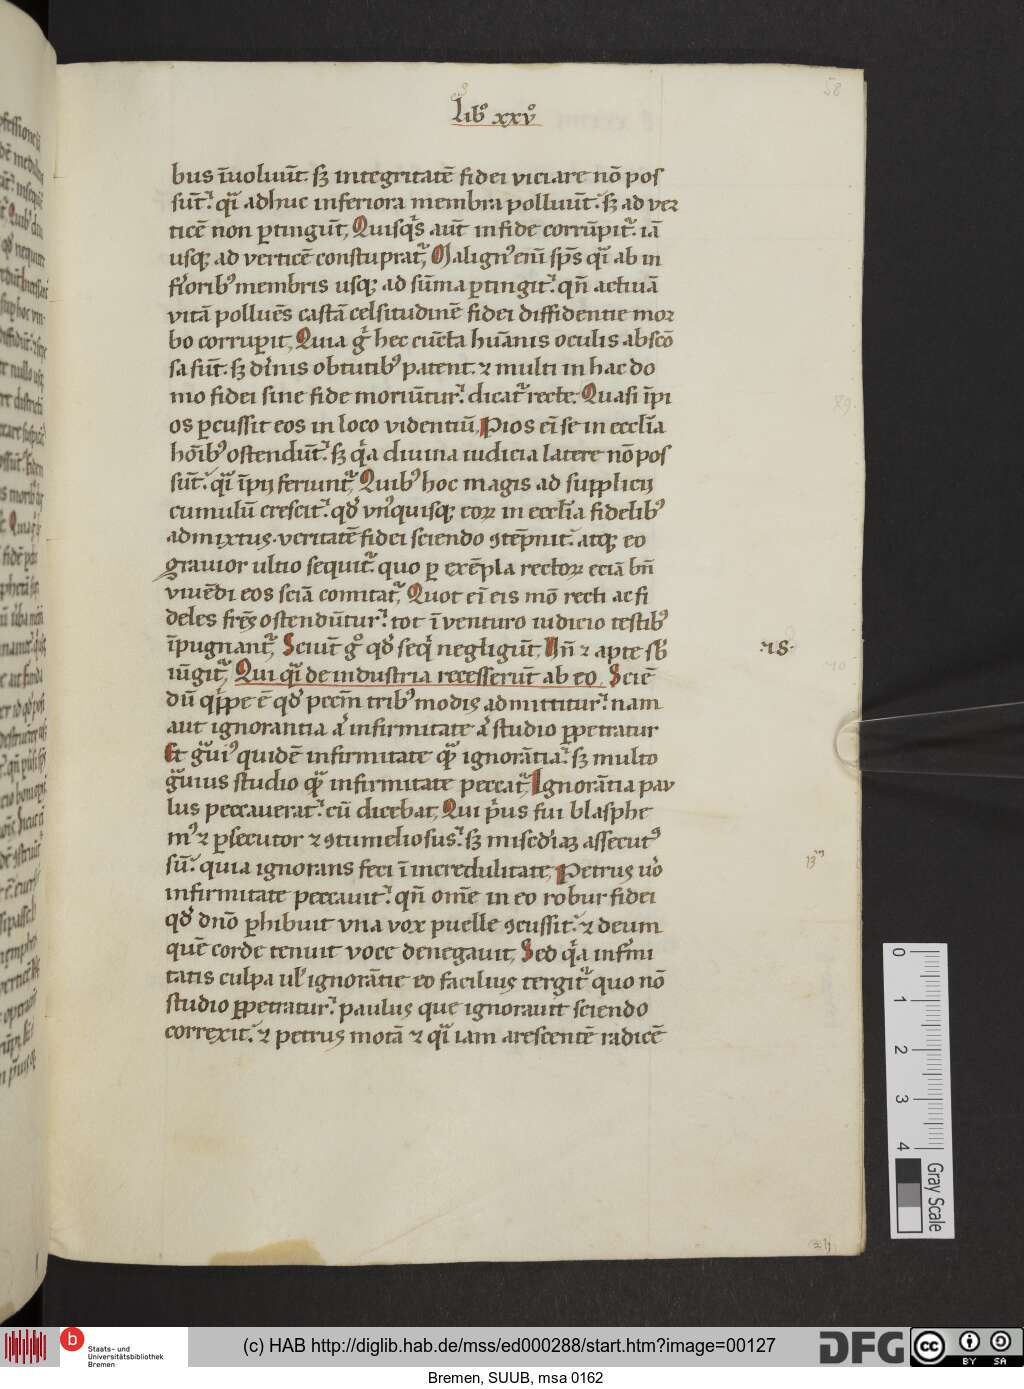 58
Lib⁹ xxv⁰
bus īuoluūt. sꝫ integritatē fidei viciare nō pos
sūt. qͥa adhuc inferiora membra polluūt. sꝫ ad ver
ticē non ꝑtingūt, Quisqͥs aūt in fide corrūpit᷑. iā
usqꝫ ad verticē constuprat᷑, Malign⁹ enī sp̄s qͣi ab in
f͛iorib⁹ membris usqꝫ ad sūma ꝑtingit. qn̄ actiuā
vitā polluēs castā celsitudinē fidei diffidentie mor
bo corrupit, Quia g͛ hec cūcta hūanis oculis abscō
sa sūt. sꝫ diͥnis obtutib⁹ patent. ⁊ multi in hac do
mo fidei sine fide moriūtur. dicat᷑ recte. Quasi īpi
os ꝑcussit eos in loco videntiū, Pios eī se in eccl̄ia
hoīb⁹ ostendūt. sꝫ qͥa diuina iudicia latere nō pos
sūt. qͣi īpii feriunt᷑, Quib⁹ hoc magis ad supplicii
cumulū crescit. qd̕ vn⁹quisqꝫ eoꝝ in eccl̄ia fidelib⁹
admixtus. veritatē fidei sciendo ꝯtēpnit. atqꝫ eo
grauior ultio sequit᷑. quo ꝑ exēpla rectoꝝ eciā bn̄
viuēdi eos sciā comitat᷑, Quot eī eis mō recti ac fi
deles fr̄es ostendūtur. tot ī venturo iudicio testib⁹
īpugnant᷑, Sciūt g⁰ qd̕ seqͥ negligūt, Vn̄ ⁊ apte sb̕
iūgit᷑, Qui qͣi de industria recesserūt ab eo, Sciē
·18·
dū qͥppe ē qd̕ pccm̄ trib⁹ modis admittitur. nam
aut ignorantia aͭ infirmitate aͭ studio ꝑpetratur
Et gͣui⁹ quidē infirmitate qͣꝫ ignorātia. sꝫ multo
gͣuius studio qͣꝫ infirmitate peccat᷑, Ignorātia pau
lus peccauerat. cū dicebat, Qui pͥus fui blasphe
m⁹ ⁊ ꝑsecutor ⁊ ꝯtumeliosus. sꝫ misc̄diaꝫ assecut⁹
sū. quia ignorans feci ī incredulitate, Petrus uͦo
infirmitate peccauit. qn̄ omē in eo robur fidei
qd̕ dn̄o ꝑhibuit vna vox puelle ꝯcussit. ⁊ deum
quē corde tenuit voce denegauit, Sed qͥa infͥmi
tatis culpa ul̕ ignorātie eo facilius tergit᷑ quo nō
studio ꝑpetratur. paulus que ignorauit sciendo
correxit. ⁊ petrus motā ⁊ qͣi iam arescentē radicē
0
1
2
3
4
Gray Scale
b
Staats- und
Universitätsbibliothek
Bremen
(c) HAB http://diglib.hab.de/mss/ed000288/start.htm?image=00127
DFG
cc
BY SA
Bremen, SUUB, msa 0162